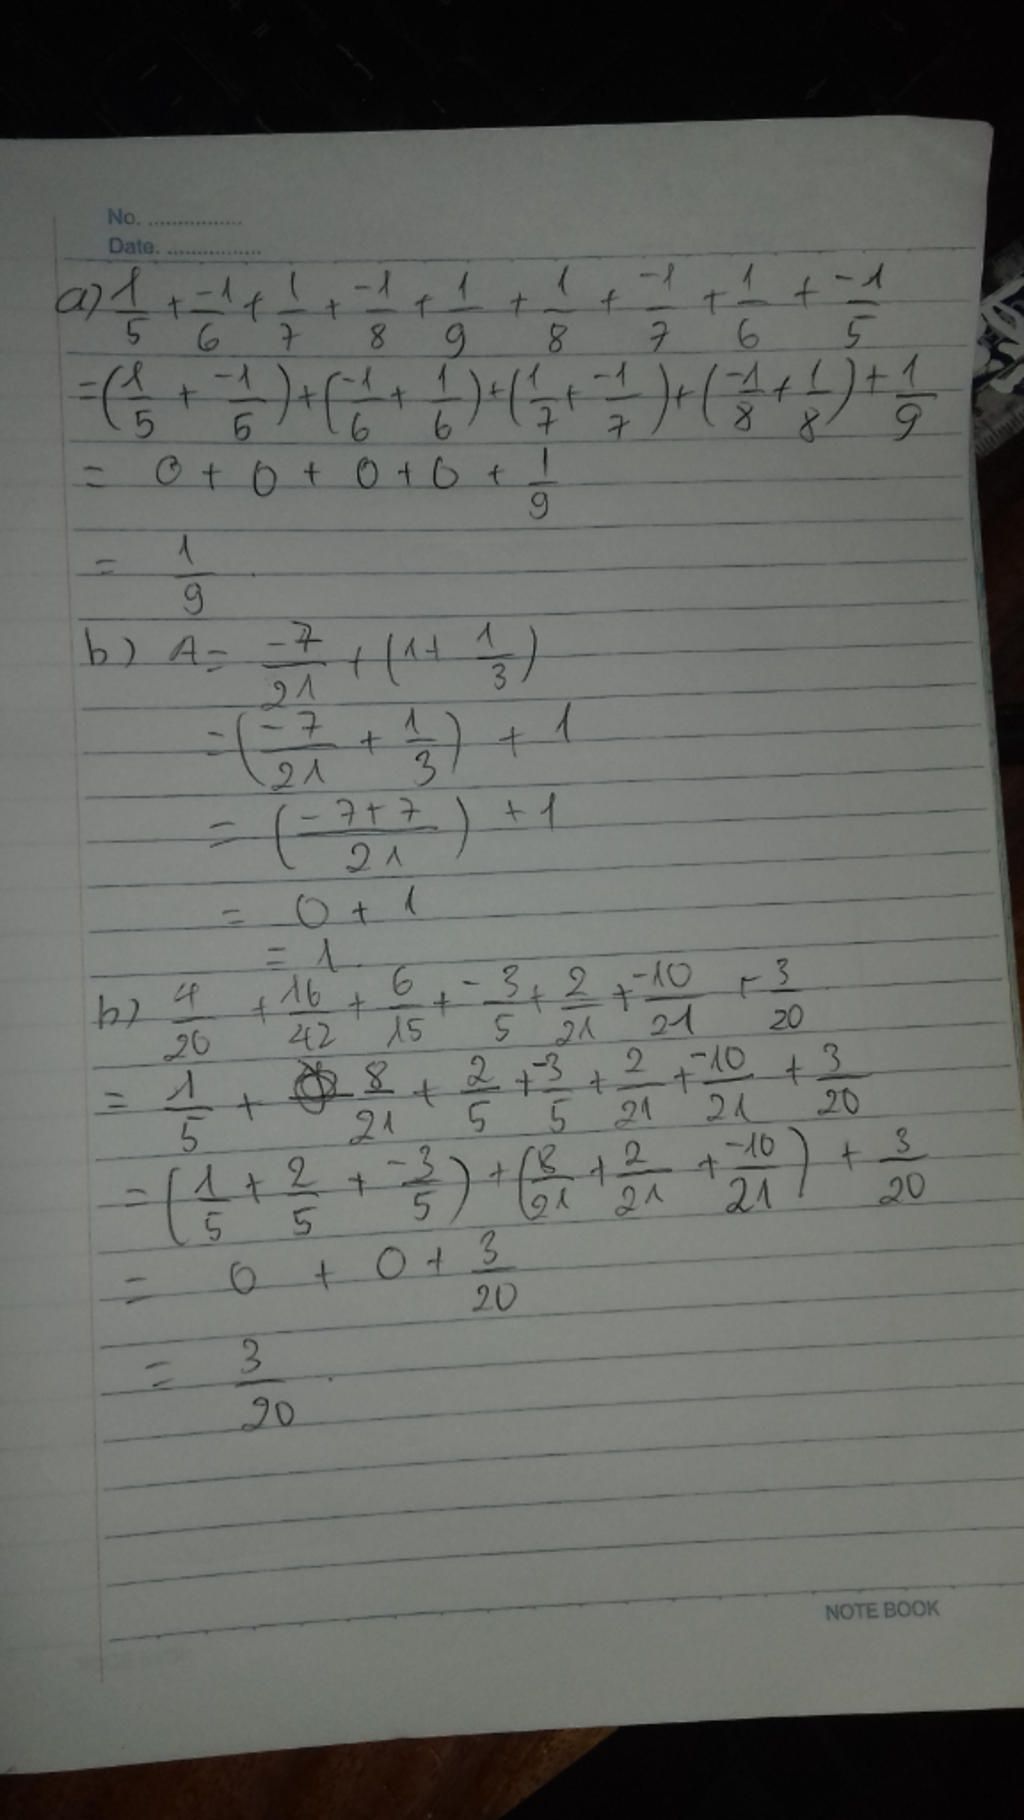 No. ................
Date. ................
a) 1/5 + -1/6 + 1/7 + -1/8 + 1/9 + 1/8 + -1/7 + 1/6 + -1/5
= (1/5 + -1/5) + (-1/6 + 1/6) + (1/7 + -1/7) + (-1/8 + 1/8) + 1/9
= 0 + 0 + 0 + 0 + 1/9
= 1/9.
b) A = -7/21 + (1 + 1/3)
= (-7/21 + 1/3) + 1
= (-7+7/21) + 1
= 0 + 1
= 1.
b) 4/20 + 16/42 + 6/15 + -3/5 + 2/21 + -10/21 + 3/20
= 1/5 + 8/21 + 2/5 + -3/5 + 2/21 + -10/21 + 3/20
= (1/5 + 2/5 + -3/5) + (8/21 + 2/21 + -10/21) + 3/20
= 0 + 0 + 3/20
= 3/20.
NOTE BOOK